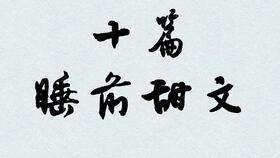 十篇
睡前甜文